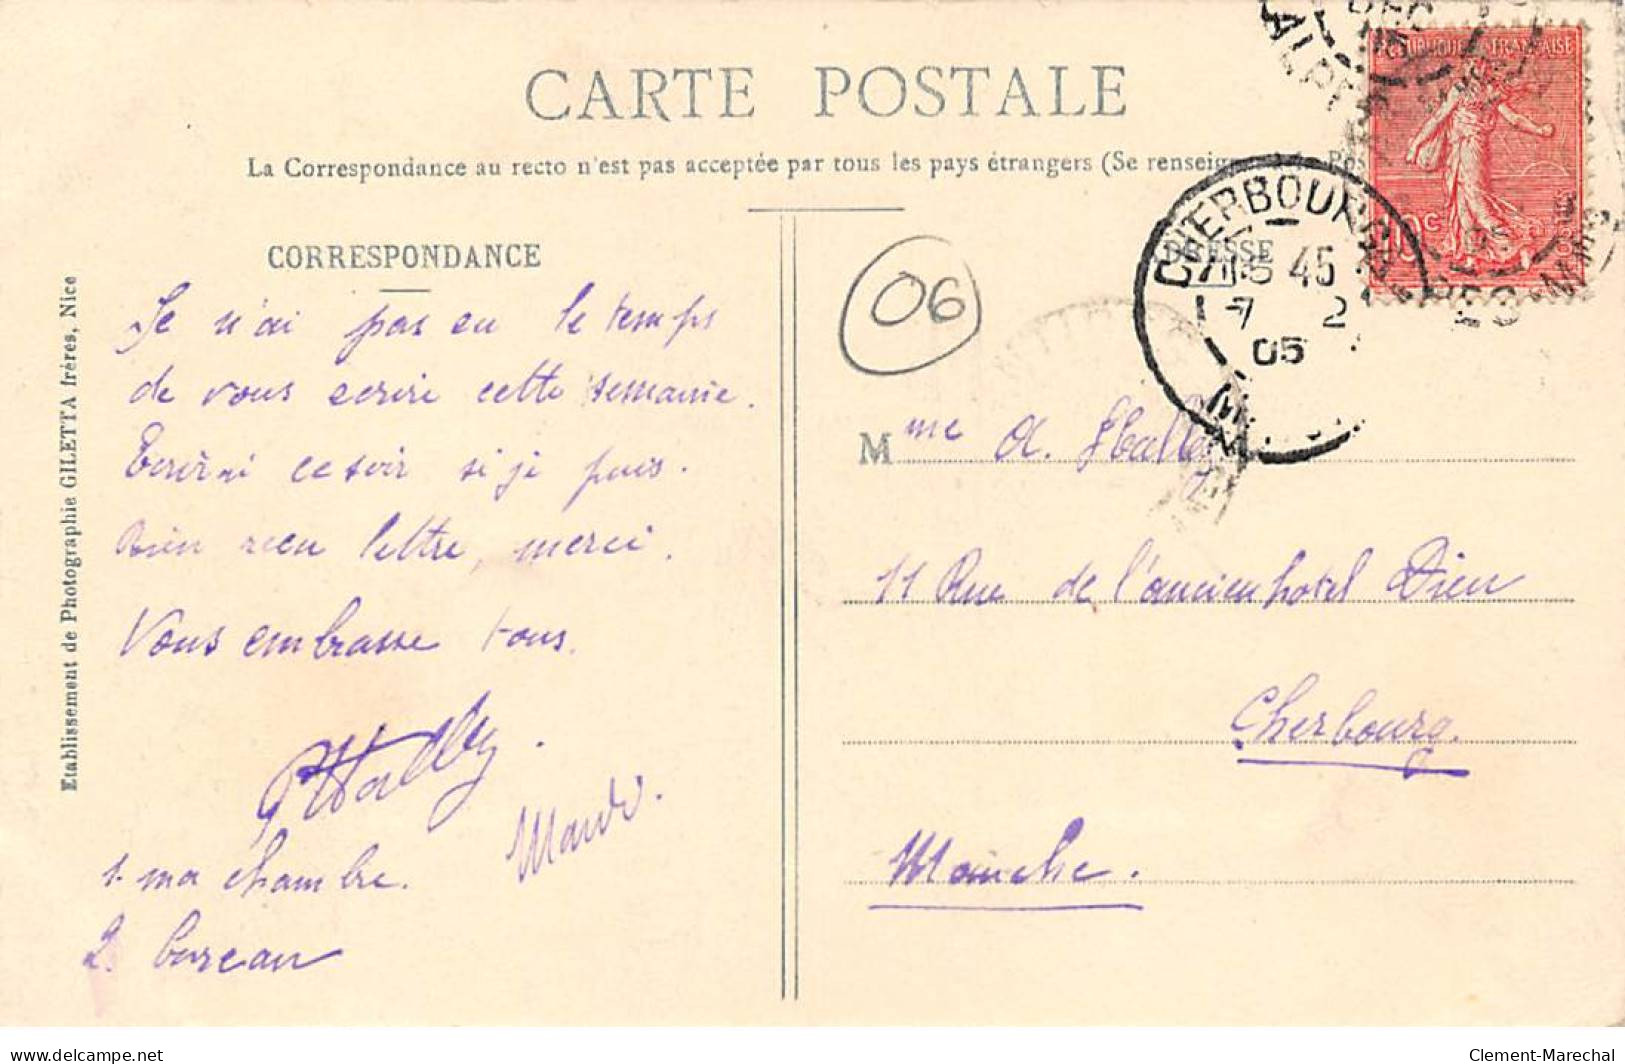 CARTE POSTALE
La Correspondance au recto n'est pas acceptée par tous les pays étrangers (Se renseign
CORRESPONDANCE
Je n'ai pas eu le temps
de vous ecrire cette semaine.
Ecrirai ce soir si je puis.
Bien recu lettre, merci.
Vous embrasse tous.
Mardi.
1. ma chambre.
2. bureau
Etablissement de Photographie GILETTA frères, Nice
06
REPUBLIQUE FRANÇAISE
10c
CHERBOURG
45
7 2
05
ADRESSE
Mme A.
11 Rue de l'ancien hotel Dieu
Cherbourg.
Manche.
delcampe.net
Clement-Marechal